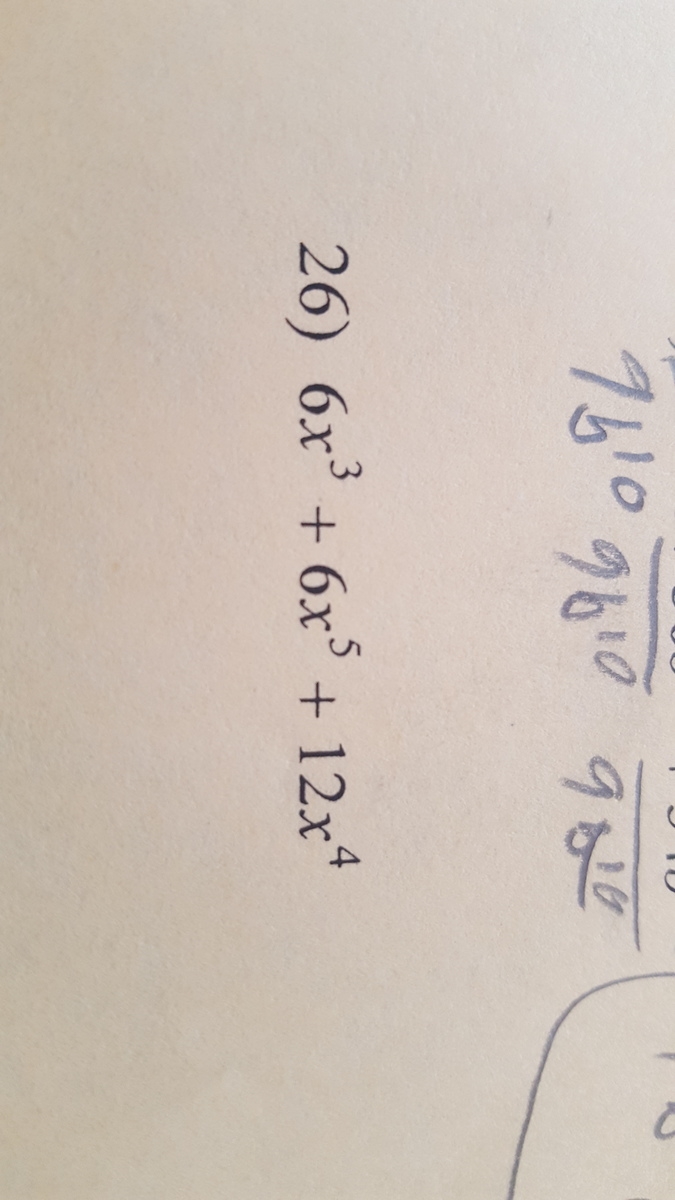 9b¹⁰ 9b¹⁰ 9b¹⁰
26) 6x³ + 6x⁵ + 12x⁴